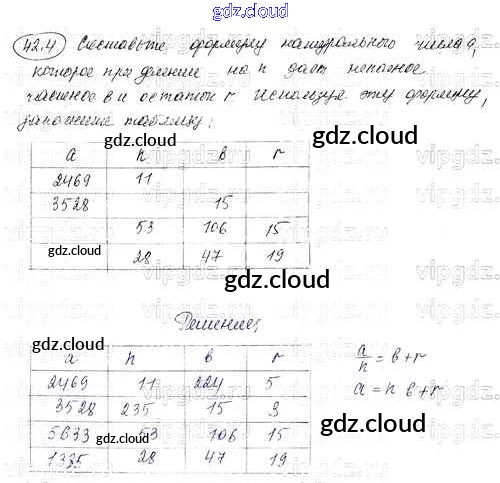 gdz.cloud
42.4 Составьте формулу натурального числа a,
которое при делении на n дает неполное
частное в и остаток r. Используя эту формулу,
заполните таблицу:
gdz.cloud
a n в r
2469 11
3528 15
53 106 15
gdz.cloud 28 47 19
gdz.cloud
Решение:
gdz.cloud
a n в r
2469 11 224 5
3528 235 15 3
5633 53 106 15
1335 28 47 19
gdz.cloud
a/n = в + r
a = n в + r
gdz.cloud